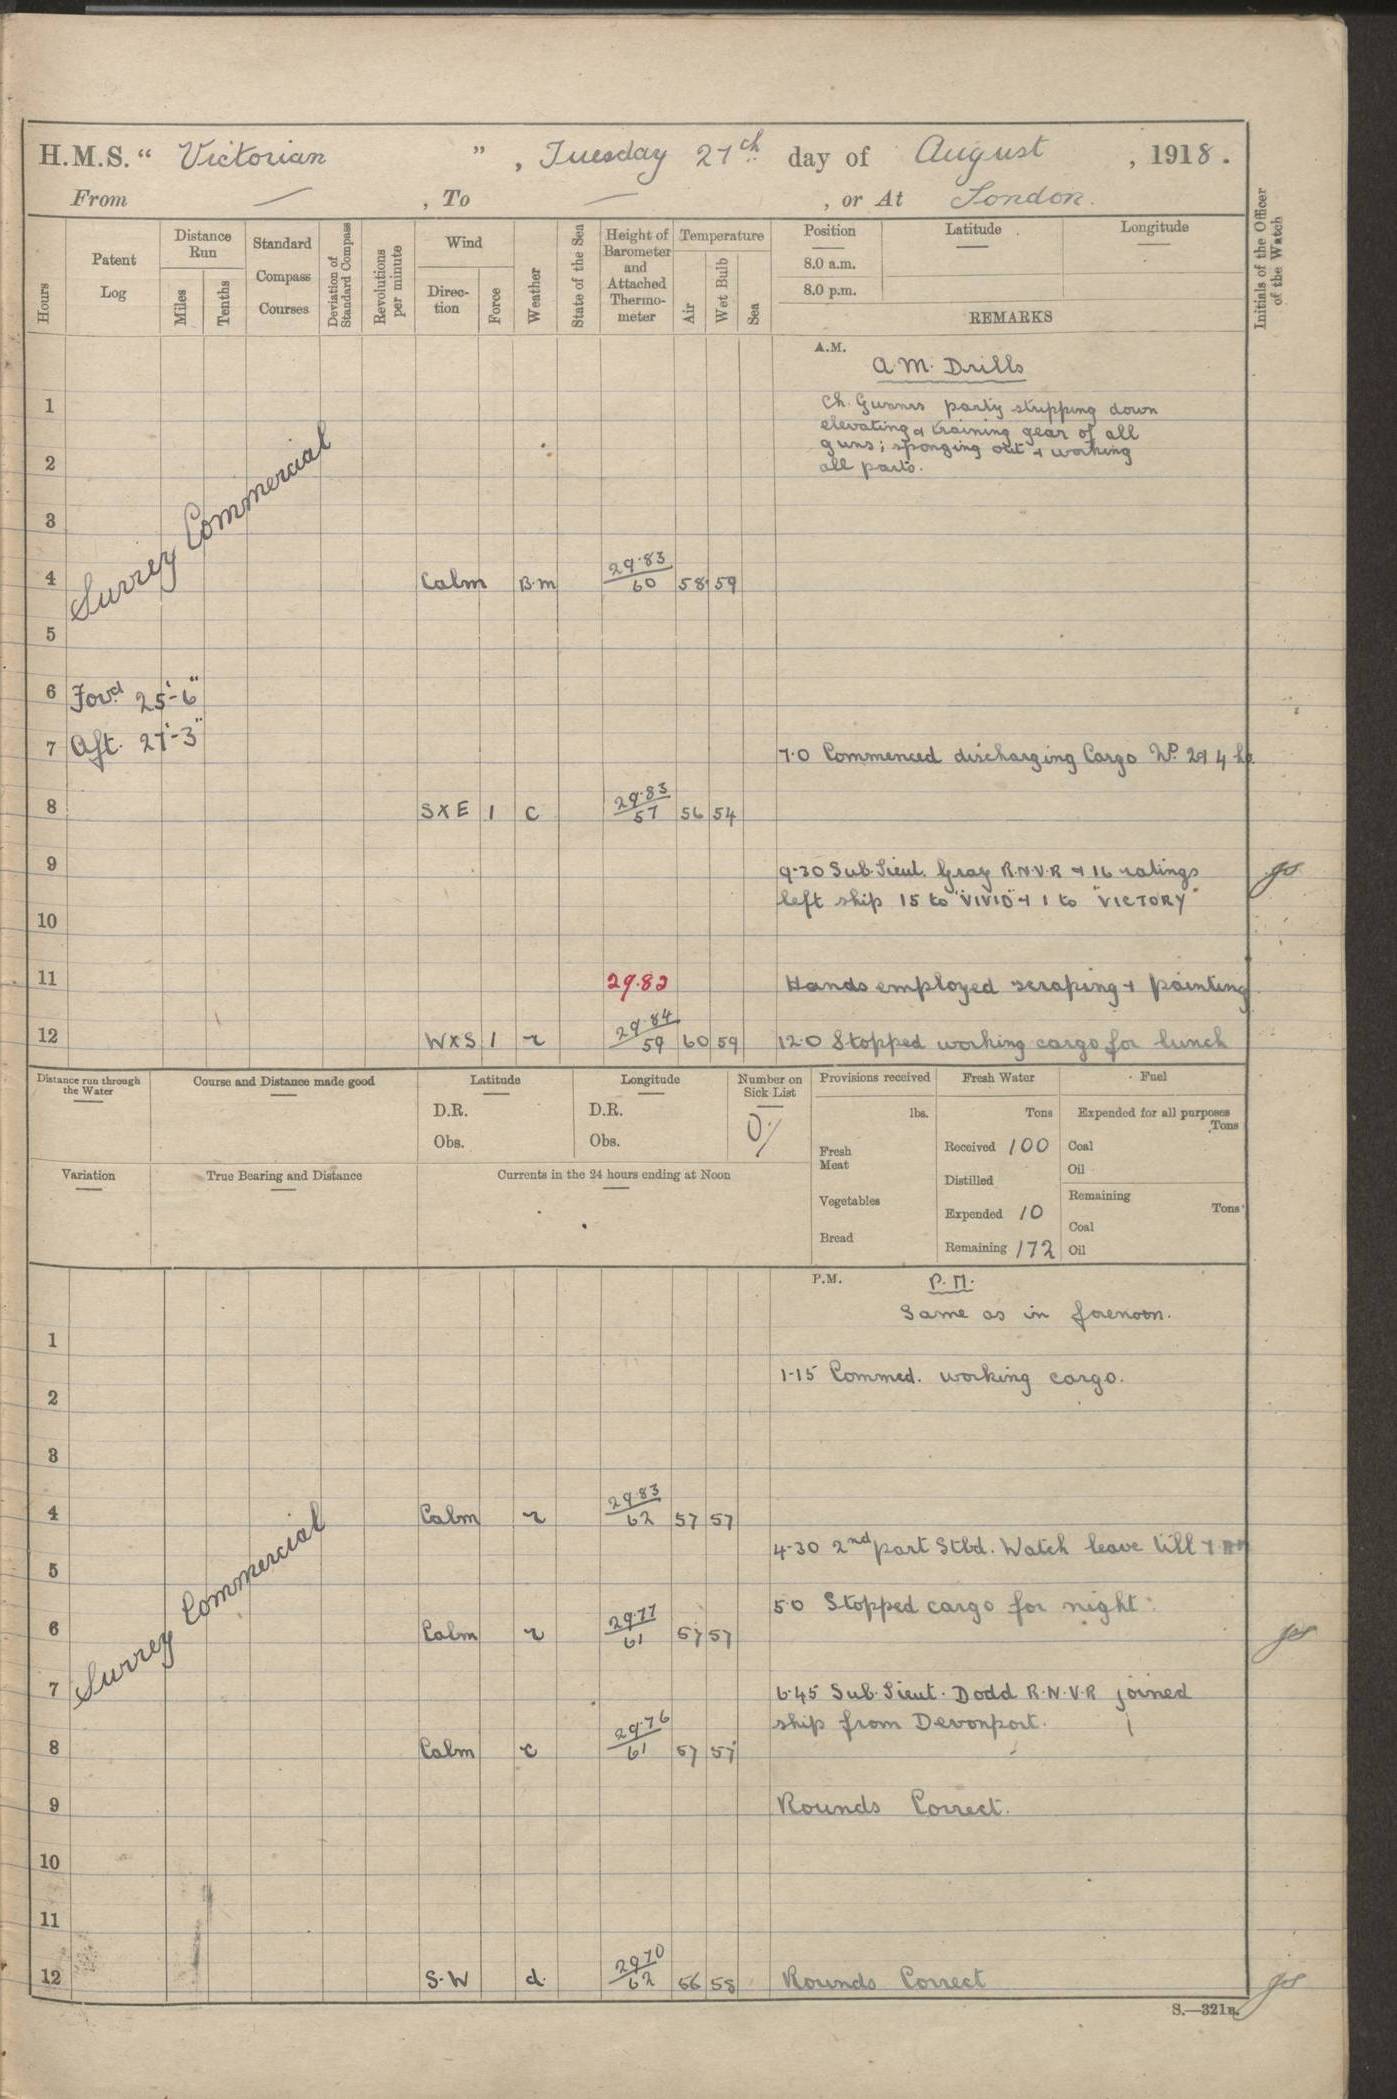 H.M.S. “ Victorian ” , Tuesday 27th day of August , 1918.
From — , To — , or At London.
Hours
Patent Log
Distance Run
Miles
Tenths
Standard Compass Courses
Deviation of Standard Compass
Revolutions per minute
Wind
Direc-tion
Force
Weather
State of the Sea
Height of Barometer and Attached Thermo-meter
Temperature
Air
Wet Bulb
Sea
Position
8.0 a.m.
8.0 p.m.
Latitude
Longitude
REMARKS
Initials of the Officer of the Watch
A.M.
A.M. Drills
1 Ch. Gunnrs party stripping down
elevating & training gear of all
guns; sponging out & working
2 all parts.
3
Surrey Commercial
4 Calm B.m 29.83/60 58 59
5
6 Forwd 25'-6"
7 Aft. 27'-3" 7.0 Commenced discharging Cargo
8 S X E 1 c 29.83/57 56 54
9 9.30 Sub.Lieut. Gray R.N.V.R & 16 ratings
left ship 15 to "VIVID" & 1 to "VICTORY"
10
11 29.82 Hands employed scraping & painting
12 W X S 1 r 29.84/59 60 59 12.0 Stopped working cargo for lunch
Distance run through the Water
Course and Distance made good
Latitude
D.R.
Obs.
Longitude
D.R.
Obs.
Number on Sick List
0/
Variation
True Bearing and Distance
Currents in the 24 hours ending at Noon
Provisions received
lbs.
Fresh Meat
Vegetables
Bread
Fresh Water
Tons
Received 100
Distilled
Expended 10
Remaining 172
Fuel
Expended for all purposes
Tons
Coal
Oil
Remaining
Tons
Coal
Oil
P.M.
P.M.
Same as in forenoon.
1
1.15 Commed. working cargo.
2
3
4 Calm r 29.83/62 57 57
4.30 2nd part Stbd. Watch leave till 7 AM
5
5.0 Stopped cargo for night.
Surrey Commercial
6 Calm r 29.77/61 57 57
7 6.45 Sub.Lieut. Dodd R.N.V.R joined
ship from Devonport.
8 Calm c 29.76/61 57 57
9 Rounds Correct.
10
11
12 S.W d. 29.70/62 56 58 Rounds Correct
S.—321B.